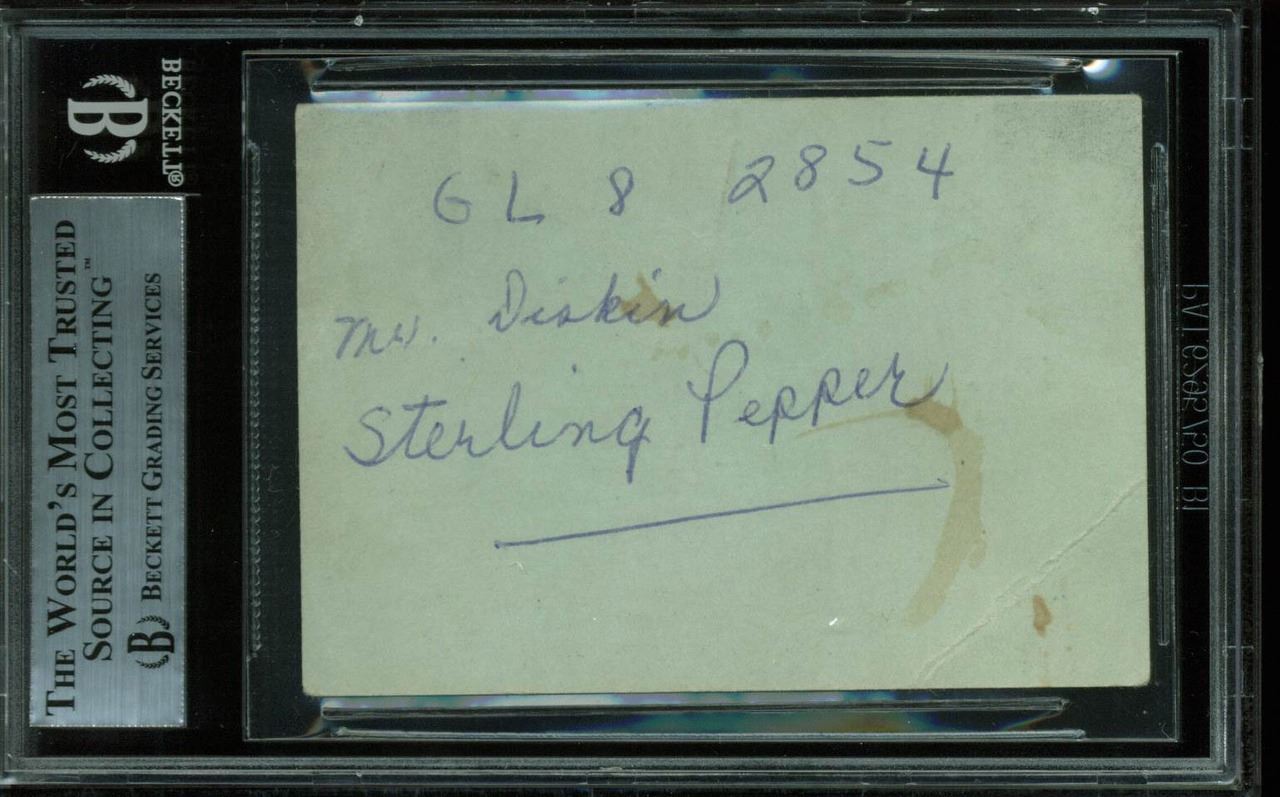 GL 8 2854
Mr. Diskin
Sterling Pepper
BECKETT®
B
THE WORLD'S MOST TRUSTED
SOURCE IN COLLECTING™
B BECKETT GRADING SERVICES